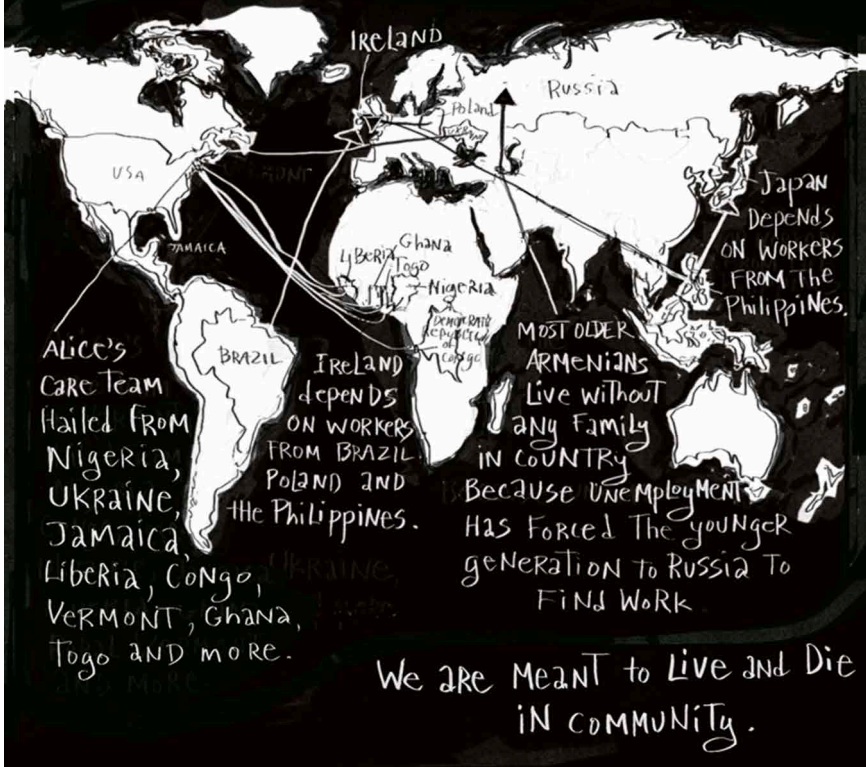 IRELAND
RUSSIA
Poland
USA
VERMONT
JAMAICA
LIBERIA
Ghana
Togo
NigeRIA
DEMOCRATIC
Republic
of
Congo
BRAZIL
Japan
Depends
ON WORKERS
FROM The
PhilippiNes.
Alice's
CARE TEAM
Hailed FROM
NigeRIA,
UKRAINE,
JAMAICA,
LibeRia, CoNgo,
VeRMONT, GhaNa,
Togo AND MORE.
IReLAND
depeNds
ON WORKeRS
FROM BRAZIL
PoLAND AND
the PhiLippiNes.
MOST OLDER
ARMENIANS
Live without
any Family
iN COUNTRY
Because UNeMpLOYMeNT
HAS FORCed The youNgeR
geNeRATioN to RUSSIA To
FiNd WoRK
We ARe MeaNT to Live aNd Die
iN COMMUNiTy.